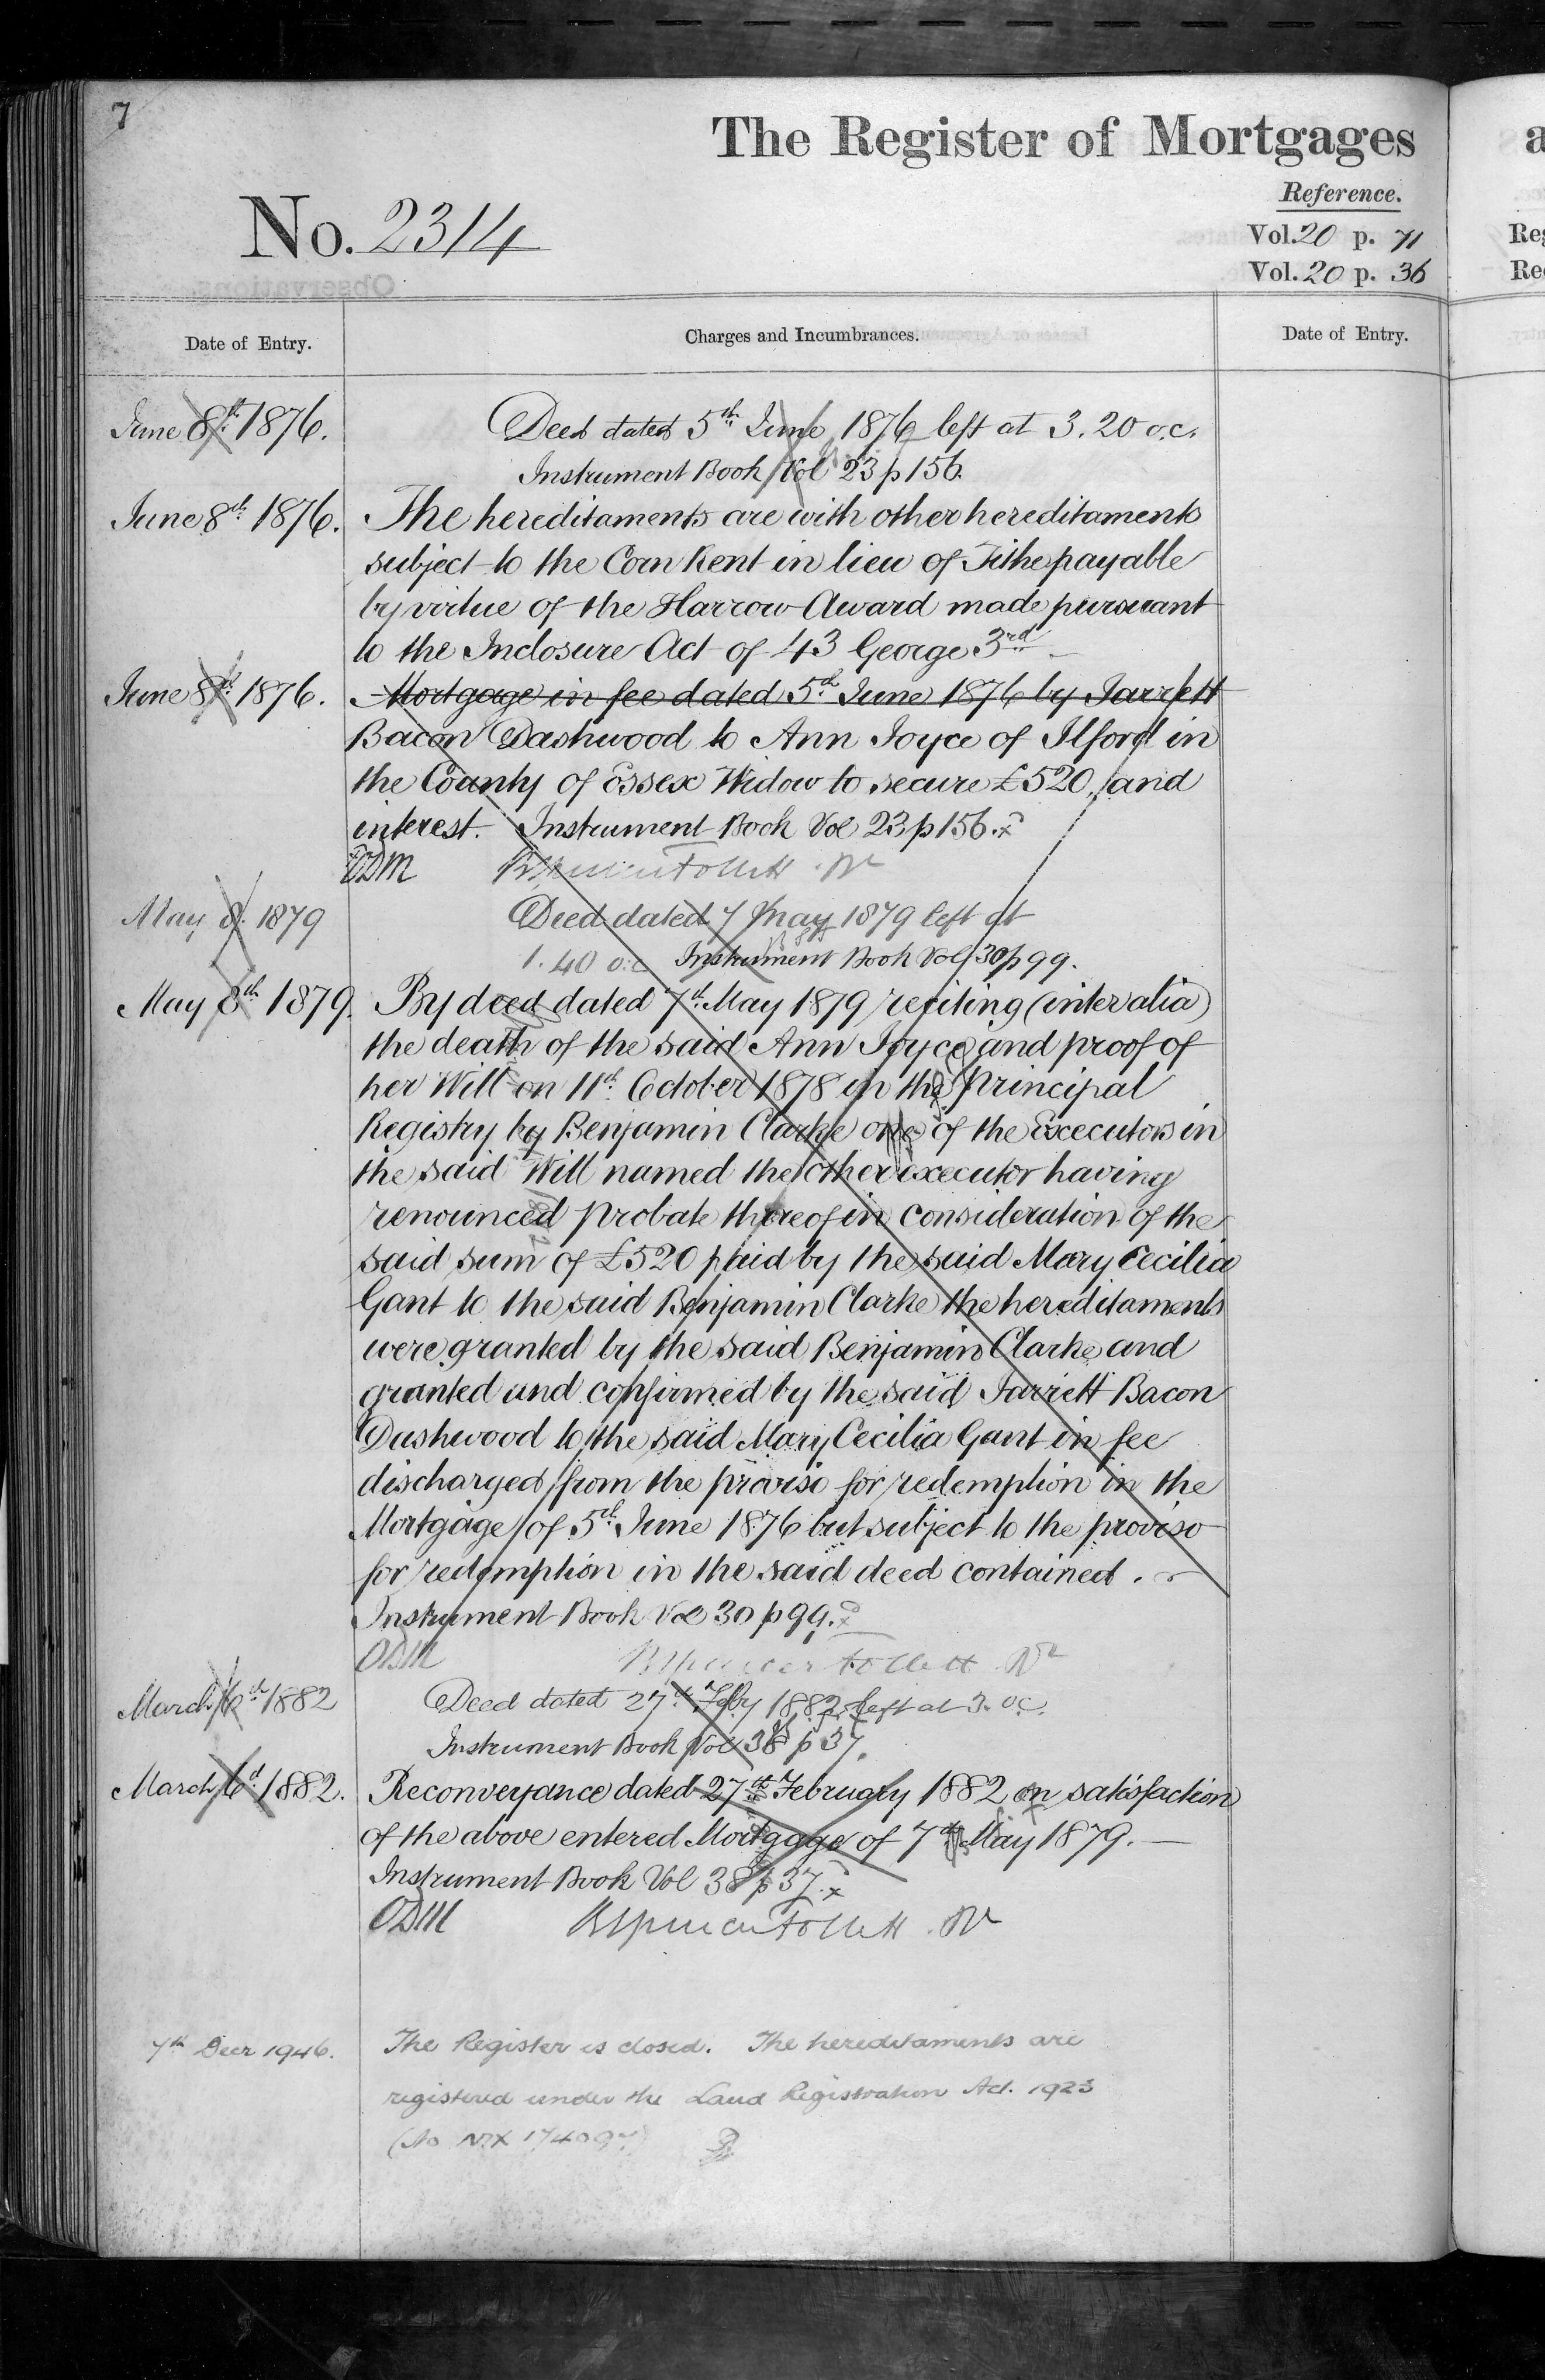 7
The Register of Mortgages
Reference.
No. 2314
Vol. 20 p. 71
Vol. 20 p. 36
Date of Entry.
Charges and Incumbrances.
Date of Entry.
June 8th 1876.
Deed dated 5th June 1876 left at 3.20 o.c.
Instrument Book Vol 23 p 156.
June 8th 1876.
The hereditaments are with other hereditaments
subject to the Corn Rent in lieu of Tithe payable
by virtue of the Harrow Award made pursuant
to the Inclosure Act of 43 George 3rd
June 8th 1876.
Mortgage in fee dated 5th June 1876 by Jarrett
Bacon Dashwood to Ann Joyce of Ilford in
the County of Essex Widow to secure £520, and
interest. Instrument Book Vol 23 p 156.
ODM
May 8. 1879
Deed dated 7 May 1879 left at
1.40 o.c Instrument Book Vol 30 p 99.
May 8th 1879.
By deed dated 7th May 1879 reciting (inter alia)
the death of the said Ann Joyce and proof of
her Will on 11th October 1878 in the Principal
Registry by Benjamin Clarke one of the Executors in
the said Will named the other executor having
renounced probate thereof in consideration of the
said sum of £520 paid by the said Mary Cecilia
Gant to the said Benjamin Clarke the hereditaments
were granted by the said Benjamin Clarke and
granted and confirmed by the said Jarrett Bacon
Dashwood to the said Mary Cecilia Gant in fee
discharged from the proviso for redemption in the
Mortgage of 5th June 1876 but subject to the proviso
for redemption in the said deed contained.
Instrument Book Vol 30 p 99.
ODM
March 6th 1882
Deed dated 27th Feby 1882 left at 3. o.c.
Instrument Book Vol 38 p 37.
March 6th 1882.
Reconveyance dated 27th February 1882 on satisfaction
of the above entered Mortgage of 7th May 1879.
Instrument Book Vol 38 p 37.
ODM
7th Decr 1946.
The Register is closed. The hereditaments are
registered under the Land Registration Act. 1925
(No MX 174097)
a
Reg
Re